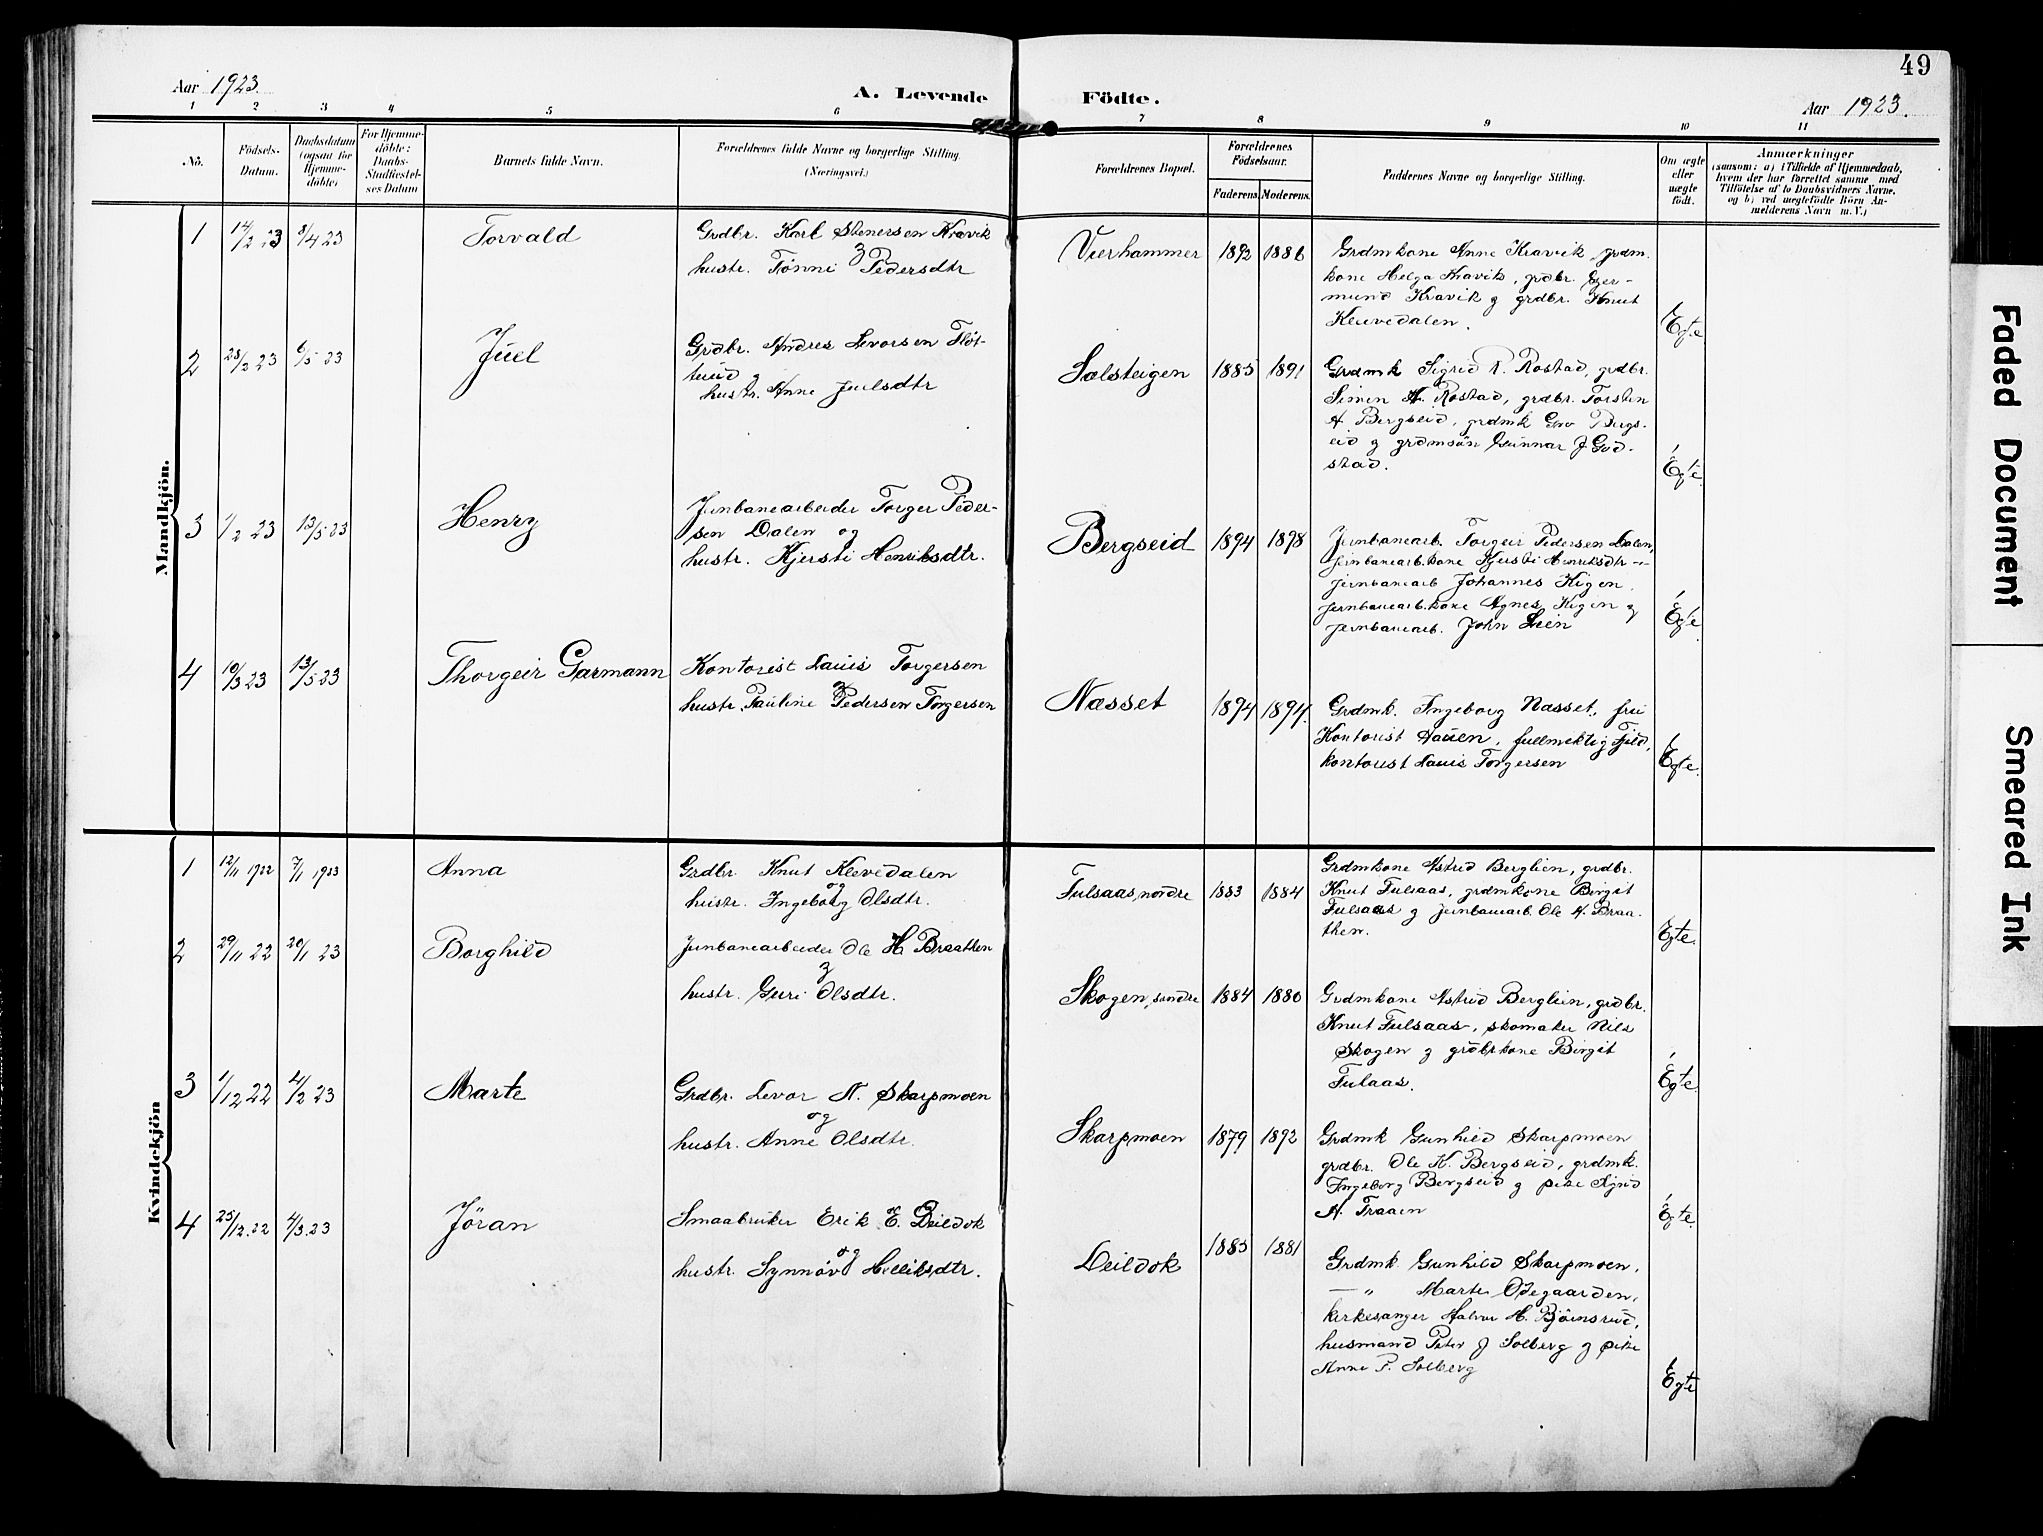 49
Aar 1923.
A. Levende Födte.
Aar 1923.
1 2 3 4 5 6 7 8 9 10 11
No.
Födsels-
Datum.
Daabsdatum
(ogsaa for
Hjemme-
döbte)
For Hjemme-
döbte:
Daabs-
Stadfæstel-
ses Datum
Barnets fulde Navn.
Forældrenes fulde Navne og borgerlige Stilling.
(Næringsvei.)
Forældrenes Bopæl.
Forældrenes
Födselsaar.
Faderens. Moderens.
Faddernes Navne og borgerlige Stilling.
Om ægte
eller
uægte
födt.
Anmærkninger
(saasom: a) i Tilfælde af Hjemmedaab,
hvem der har forrettet samme med
Tilföielse af to Daabsvidners Navne,
og b) ved uægtefödte Börn An-
melderens Navn m. V.)
Mandkjön.
1 14/2 23 8/4 23 Torvald
Grdbr. Karl Stenersen Kravik
hustr. Tønne Pedersdtr
Vierhammer 1892 1886
Grdmkone Anne Kravik, grdm.
kone Helga Kravik, grdbr. Gjer-
mund Kravik g grdbr. Knut
Klevedalen.
Egte
2 25/2 23 6/5 23 Juel
Grdbr. Andres Levorsen Fløt-
terud g
hustr. Anne Juelsdtr
Solsteigen 1885 1891
Grdmk Sigrid T. Rostad, grdbr.
Simen A. Rostad, grdbr. Torsten
A Bergseid, grdmk Gro Bergs-
eid g grdmsön Gunnar J God-
stad.
Egte.
3 1/2 23 13/5 23 Henry
Jernbanearbeider Torger Peder-
sen Dalen og
hustr. Kjersti Henriksdtr.
Bergseid 1894 1898
Jernbanearb. Torgeir Pedersen Dalen,
jernbanearb.kone Kjersti Henriksdtr
jernbanearb Johannes Kigen.
jernbanearb.kone Agnes Kigen g
jernbanearb. John Lien
Egte.
4 10/3 23 13/5 23 Thorgeir Garmann
Kontorist Lauis Torgersen
g
hustr. Pauline Pedersen Torgersen
Næsset 1894 1894.
Grdmk. Ingeborg Næsset, fru
Kontorist Hauen, fullmektig Fjeld,
kontorist Lauis Torgersen
Egte.
Kvindekjön
1 12/11 1922 7/1 1923 Anna
Grdbr Knut Klevedalen
og
hustr. Ingeborg Olsdtr.
Fulsaas, nordre 1883 1884
Grdmkone Astrid Berglien, grdbr.
Knut Fulsaas, grdmkone Birgit
Fulsaas g jernbanearb. Ole H. Braa-
then.
Egte.
2 29/11 22 20/1 23 Borghild
Jernbanearbeider Ole H. Braathen
g
hustr. Guri Olsdtr.
Skogen, søndre 1884 1880
Grdmkone Astrid Berglien, grdbr.
Knut Fulsaas, skomaker Nils
Skogen g grdbrkone Birgit
Fulaas.
Egte.
3 1/12 22 4/2 23 Marte
Grdbr. Levor N. Skarpmoen
og
hustr. Anne Olsdtr.
Skarpmoen 1879 1892
Grdmk Gunhild Skarpmoen
grdbr. Ole K. Bergseid, grdmk.
Ingeborg Bergseid g pike Sigrid
A. Traaen
Egte.
4 25/12.22 4/3.23 Jöran
Smaabruker Erik E. Deildok
og
hustr. Synnöve Helliksdtr.
Deildok 1885 1881
Grdmk Gunhild Skarpmoen,
— " Marte Ödegaarden,
kirkesanger Halvor H. Björnsrud,
husmand Peter J Solberg g pike
Anne P. Solberg
Egte
Faded Document
Smeared Ink